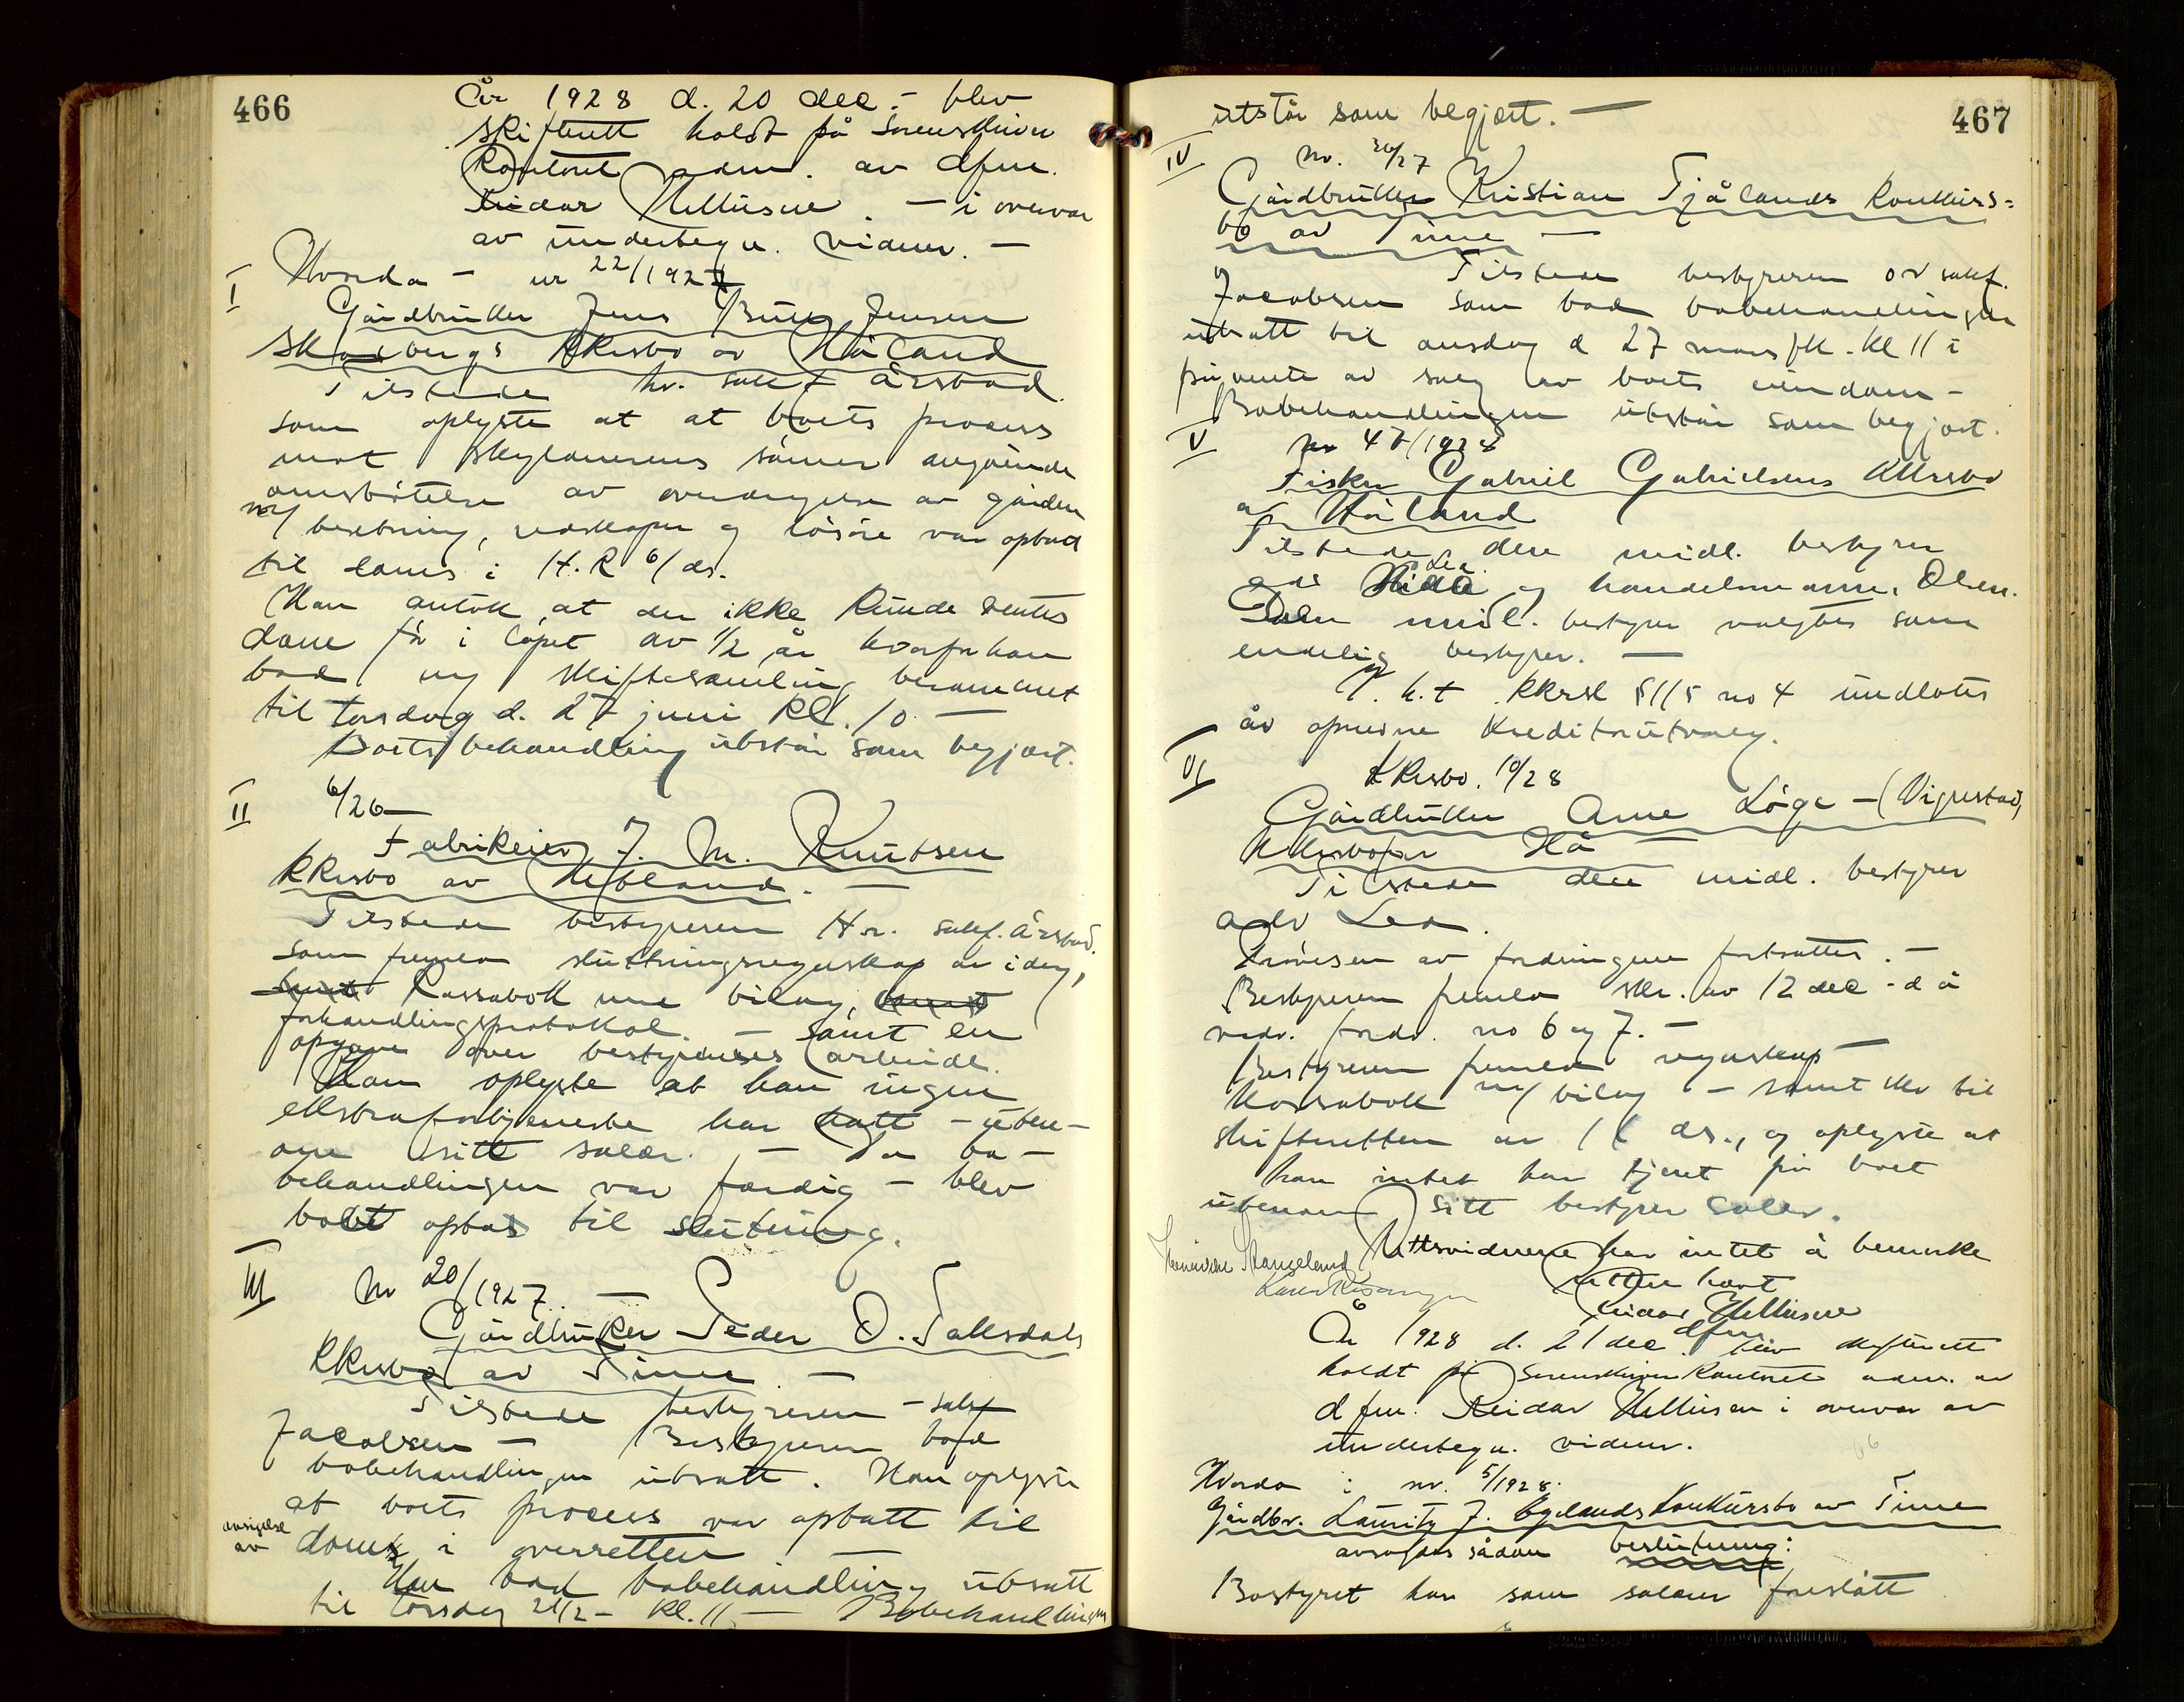 466
År 1928 d. 20 dec. - blev
skifterett holdt på sorenskriver
kontoret adm. av dfm.
Reidar Helliesen. - i overvær
av undertegn. vidner. -
I
Hvorda - nr 22/1927
Gårdbruker Jens Bing Jensen
Skadbergs kkrsbo av Håland
Tilstede hr. sakf Årstad
som oplyste at at boets process
mot skyldnerens sönner angående
omstötelse av overdragelse av gården
m/ besetning, redskaper og lösöre var optatt
til doms i H.R 6/ ds.
Han antok at der ikke kunde ventes
dom för i löpet av 1/2 år hvorfor han
bad ny skiftesamling berammet
til torsdag d. 27 juni kl. 10 -
Boets behandling utstår som begjært.
II
6/26
Fabrikeier J. M. Knutsen
kkrsbo av Hetland. -
Tilstede bestyreren Hr. sakf. Årstad.
som fremla slutningsregnskap av idag,
samt Cassabok med bilag, samt
forhandlingsprotokol. - samt en
opgave over bestyrerens arbeide.
Han oplyste at han ingen
ekstrafortjeneste har hatt - uten-
om sitt salær. - Da bo-
behandlingen var færdig - blev
boet optat til slutning.
III
Nr 20/1927. -
Gårdbruker Peder O. Taksdals
kkrsbo av Time -
Tilstede bestyreren - sakf
Jacobsen - Bestyreren bad
bobehandlingen utsatt. Han oplyste
at boets process var optatt til
avsigelse av
doms i overretten -
Han bad bobehandling utsatt
til torsdag 21/2 - kl. 11 - Bobehandlingen
467
utstår som begjært. -
IV
nr. 36/27
Gårdbruker Kristian Tjålands konkurs=
bo av Time -
Tilstede bestyreren o r sakf.
Jacobsen som bad bobehandlingen
utsatt til onsdag d 27 mars fk. kl 11 i
påvente av salg av boets eiendom -
Bobehandlingen utstår som begjært.
V
nr 47/1928
Fisker Gabriel Gabrielsens kkrsbo
av Håland
Tilstede den midl. bestyrer
adv Lea og handelsmann. Olsen.
Den midl. bestyrer valgtes som
endelig bestyrer. -
I h.t kkrsl § 115 no 4 undlates
åv opnevne Kreditorutvalg.
VI
kkrsbo. 10/28
Gårdbruker Arne Løge - (Vigrestad)
kkrsbo av Hå -
Tilstede den midl. bestyrer
adv Lea.
Prövelsen av fordringene fortsattes. -
Bestyreren fremla skr. av 12 dec - d å
vedr. fordr. no 6 og 7. -
Bestyreren fremla regnskap -
kassabok m/ bilag - samt skr til
skifteretten av 11 ds., og oplyste at
han intet har tjent på boet
utenom sitt bestyrer salær.
Rettsvidnene har intet å bemerke
Retten hævet
Reidar Helliesen
dfm.
Stangeland
År 1928 d. 21 dec blev skifterett
holdt på Sorenskriverkontoret adm. av
dfm. Reidar Helliesen i overvær av
undertegn. vidner.
Hvorda i nr. 5/1928.
Gårdbr. Lauritz J. Eglands Konkursbo av Time
avsagdes sådan beslutning:
Bostyret har som salær foreslått